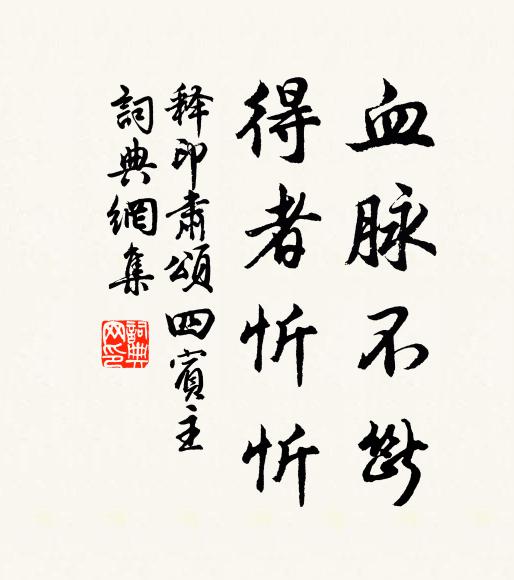 血脉不断
得者忻忻
释印肃颂四賓主
詞典網集
詞典网印